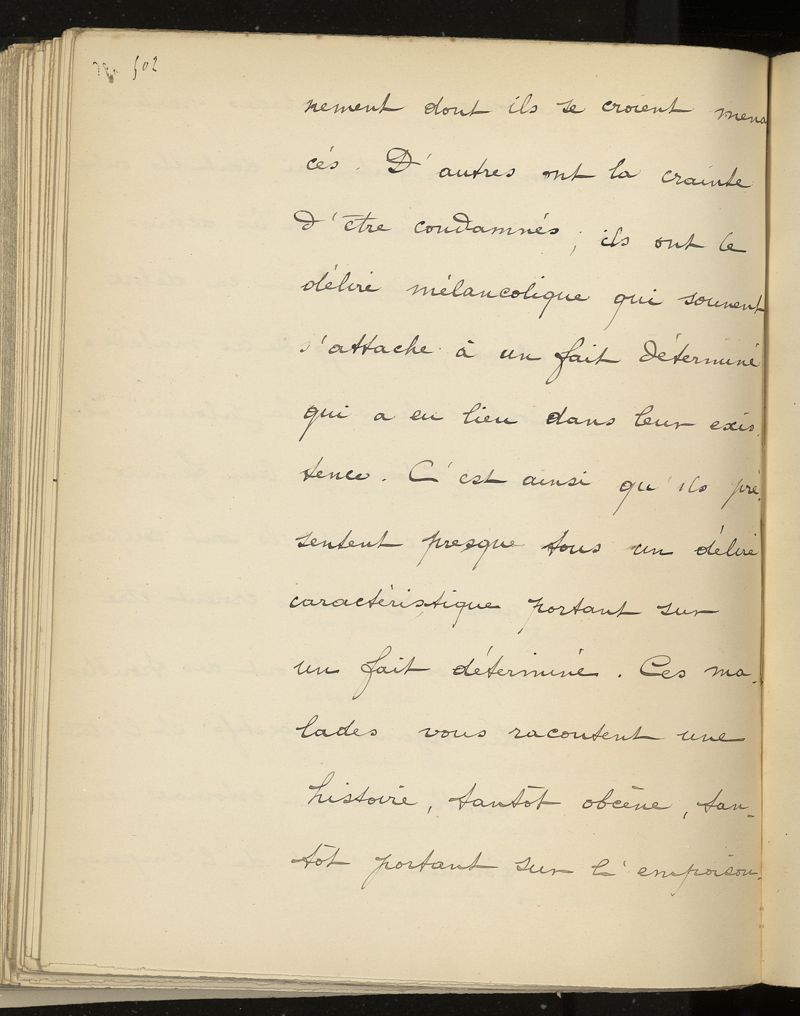 502
nement dont ils se croient mena
cés. D'autres ont la crainte
d'être condamnés ; ils ont le
délire mélancolique qui souvent
s'attache à un fait déterminé
qui a eu lieu dans leur exis-
tence. C'est ainsi qu'ils pré-
sentent presque tous un délire
caractéristique portant sur
un fait déterminé. Ces ma-
lades vous racontent une
histoire, tantôt obcène, tan-
tôt portant sur l'empoison-